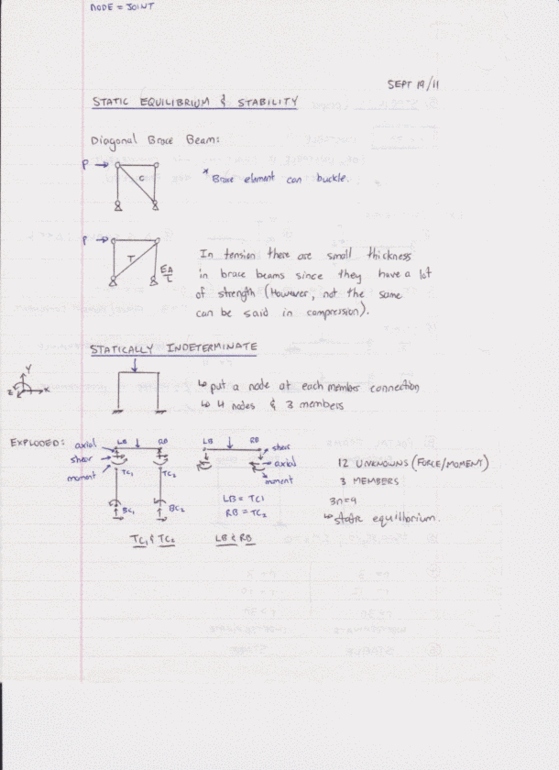 NODE = JOINT
SEPT 19/11
STATIC EQUILIBRIUM & STABILITY
Diagonal Brace Beam:
P
C
* Brace element can buckle.
P
T
EA
L
In tension there are small thickness
in brace beams since they have a lot
of strength (However, not the same
can be said in compression).
STATICALLY INDETERMINATE
Y
Z
X
↳ put a node at each member connection
↳ 4 nodes & 3 members
EXPLODED:
axial
shear
moment
LB
RB
TC1
TC2
BC1
BC2
LB
RB
shear
axial
moment
LB = TC1
RB = TC2
TC1 & TC2
LB & RB
12 UNKNOWNS (FORCE/MOMENT)
3 MEMBERS
3n=9
↳ static equilibrium.